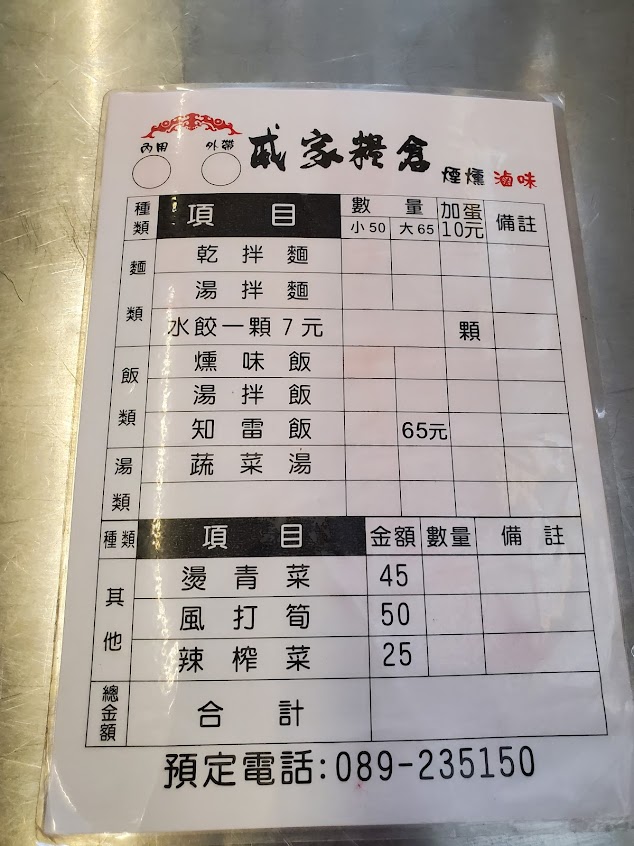 內用 外帶 戚家糧倉 煙燻 滷味
種類 項目 數量 加蛋10元 備註
小50 大65
麵類 乾拌麵
湯拌麵
水餃一顆7元 顆
飯類 燻味飯
湯拌飯
知雷飯 65元
湯類 蔬菜湯
種類 項目 金額 數量 備註
其他 燙青菜 45
風打筍 50
辣榨菜 25
總金額 合計
預定電話:089-235150